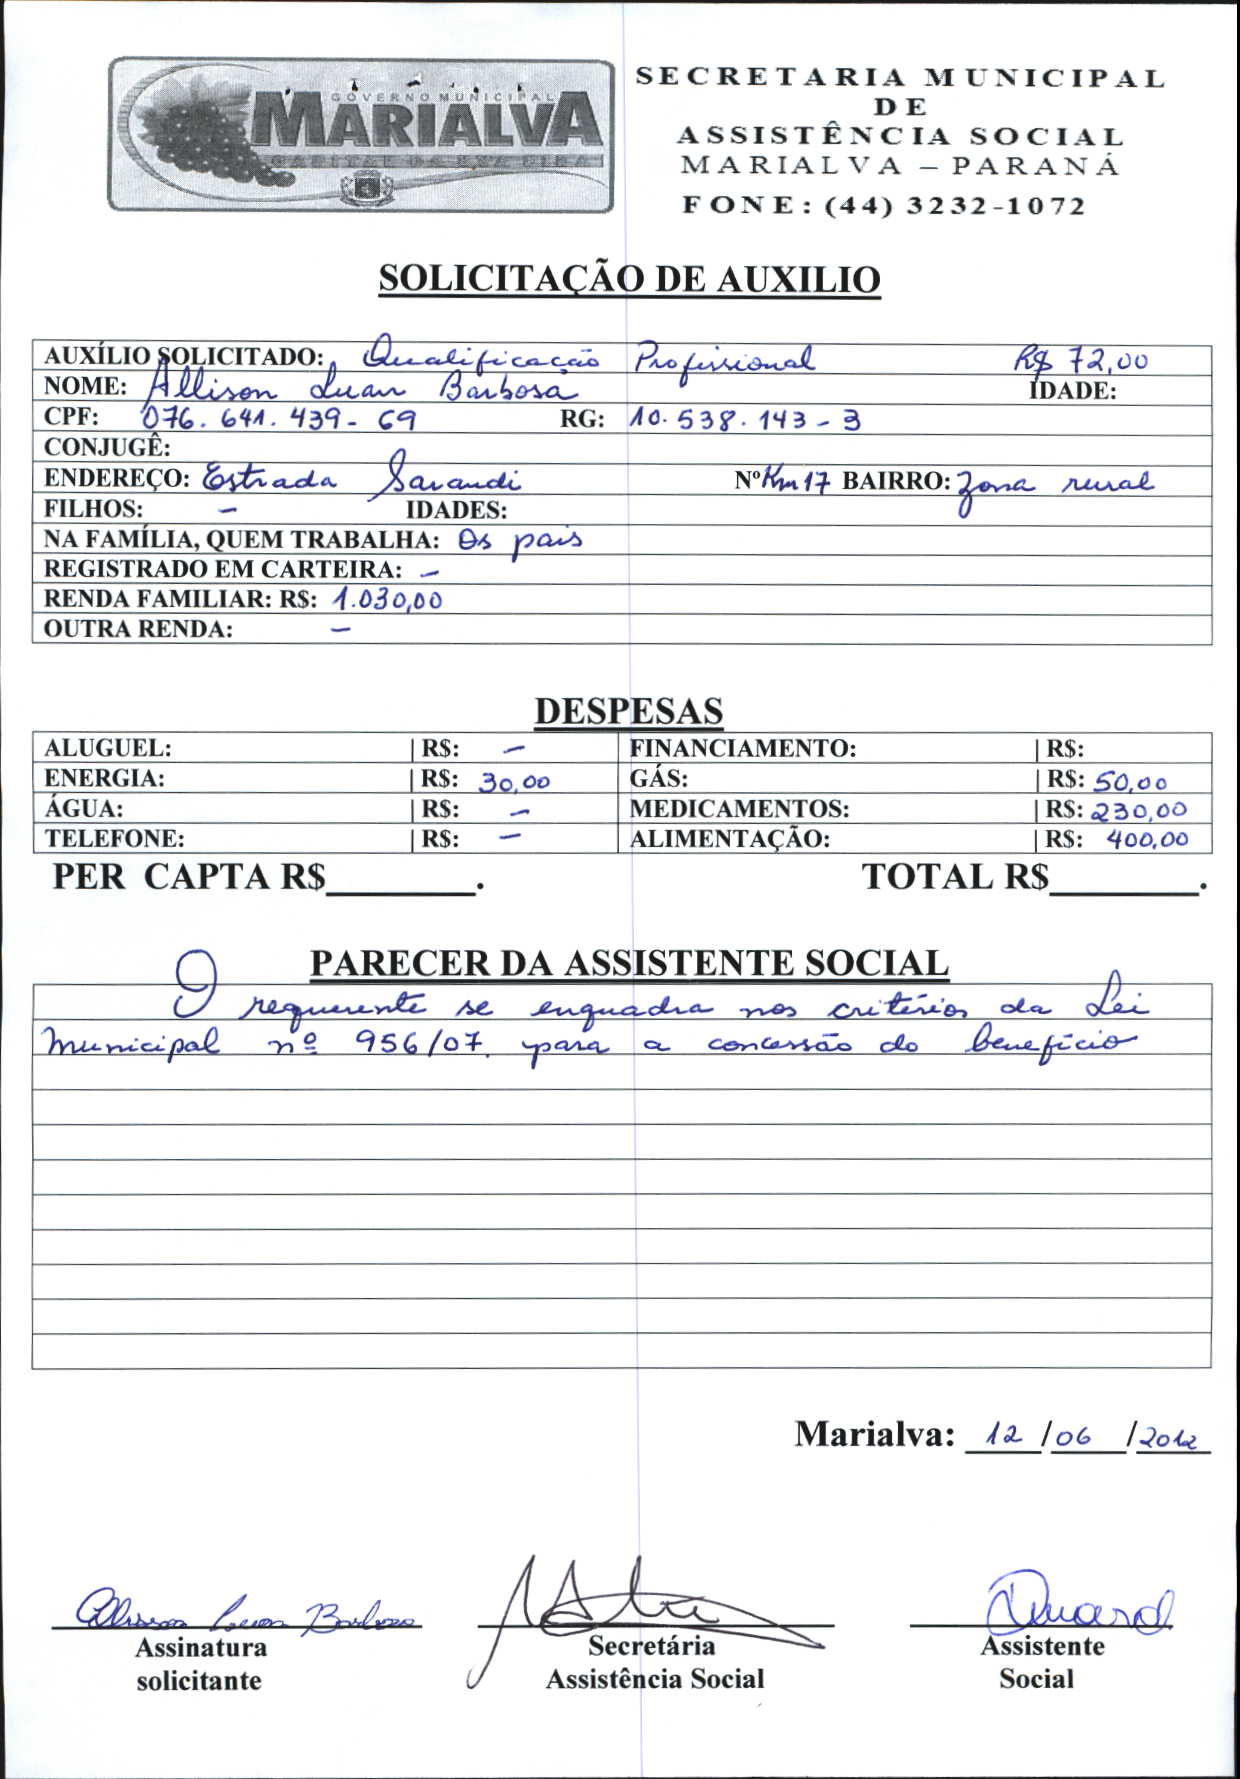 GOVERNO MUNICIPAL
MARIALVA
CAPITAL DA UVA FINA
SECRETARIA MUNICIPAL
DE
ASSISTÊNCIA SOCIAL
MARIALVA – PARANÁ
FONE: (44) 3232-1072
SOLICITAÇÃO DE AUXILIO
AUXÍLIO SOLICITADO: Qualificação Profissional R$ 72,00
NOME: Allison Luan Barbosa IDADE:
CPF: 076.641.439-69 RG: 10.538.143-3
CONJUGÊ:
ENDEREÇO: Estrada Sarandi Nº Km 17 BAIRRO: Zona rural
FILHOS: – IDADES:
NA FAMÍLIA, QUEM TRABALHA: Os pais
REGISTRADO EM CARTEIRA: –
RENDA FAMILIAR: R$: 1.030,00
OUTRA RENDA: –
DESPESAS
ALUGUEL: | R$: – FINANCIAMENTO: | R$:
ENERGIA: | R$: 30,00 GÁS: | R$: 50,00
ÁGUA: | R$: – MEDICAMENTOS: | R$: 230,00
TELEFONE: | R$: – ALIMENTAÇÃO: | R$: 400,00
PER CAPTA R$________. TOTAL R$________.
PARECER DA ASSISTENTE SOCIAL
O requerente se enquadra nos critérios da Lei
Municipal nº 956/07. para a concessão do benefício
Marialva: 12 /06 /2012
Allison Luan Barbosa
Assinatura Secretária Assistente
solicitante Assistência Social Social